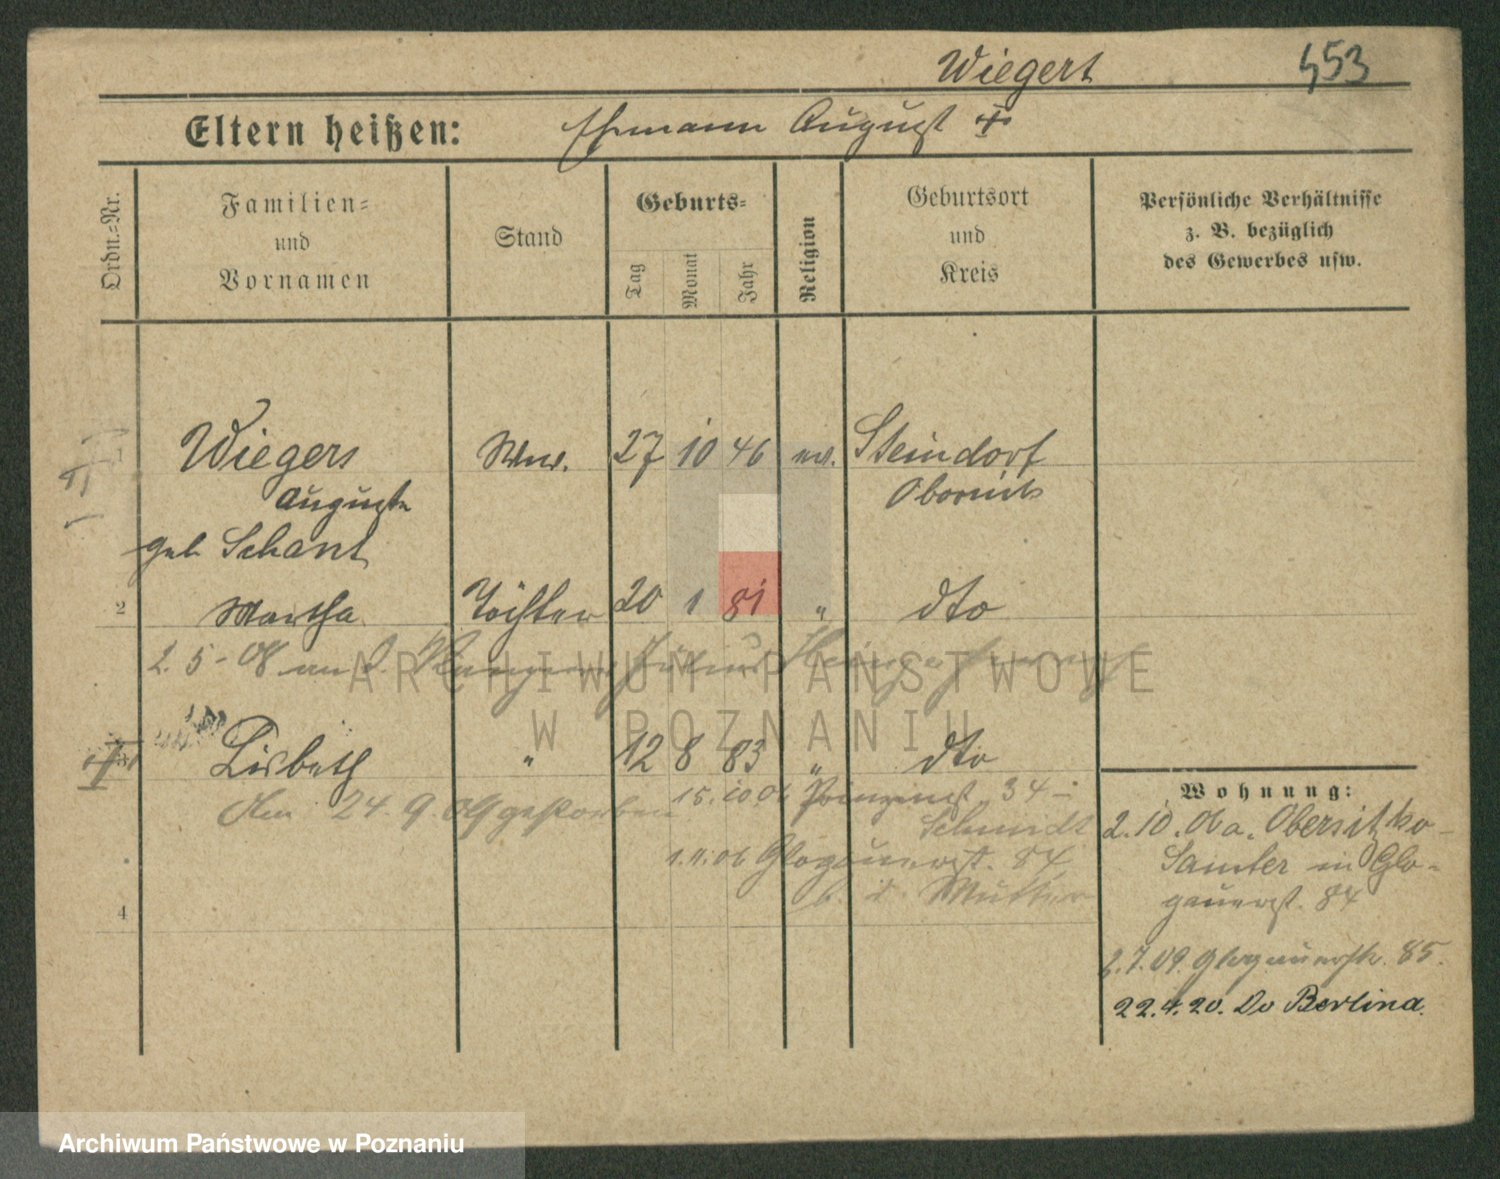 Wiegert 453
Eltern heißen: Ehemann August
Ordn.=Nr.
Familien=
und
Vornamen
Stand
Geburts=
Tag
Monat
Jahr
Religion
Geburtsort
und
Kreis
Persönliche Verhältnisse
z. B. bezüglich
des Gewerbes usw.
1 Wiegers Wwe. 27 10 46 ev. Steindorf
Auguste Obornik
geb Schant
2 Martha Tochter 20 1 81 " dto
2. 5-08 an d.
ARCHIWUM PAŃSTWOWE
W POZNANIU
3 Lisbeth " 12 8 83 " dto
Am 24. 9. gestorben
15. 10 06 Prinzenst 34 -
Schmidt
1. 11. 06 Glogauerst. 84
b. d. Mutter
4
Wohnung:
2. 10. 06 a. Obersitzko-
Samter in Glo-
gauerst. 84
2. 7. 09. Glogauerstr. 85.
22. 4. 20. Do Berlina.
Archiwum Państwowe w Poznaniu